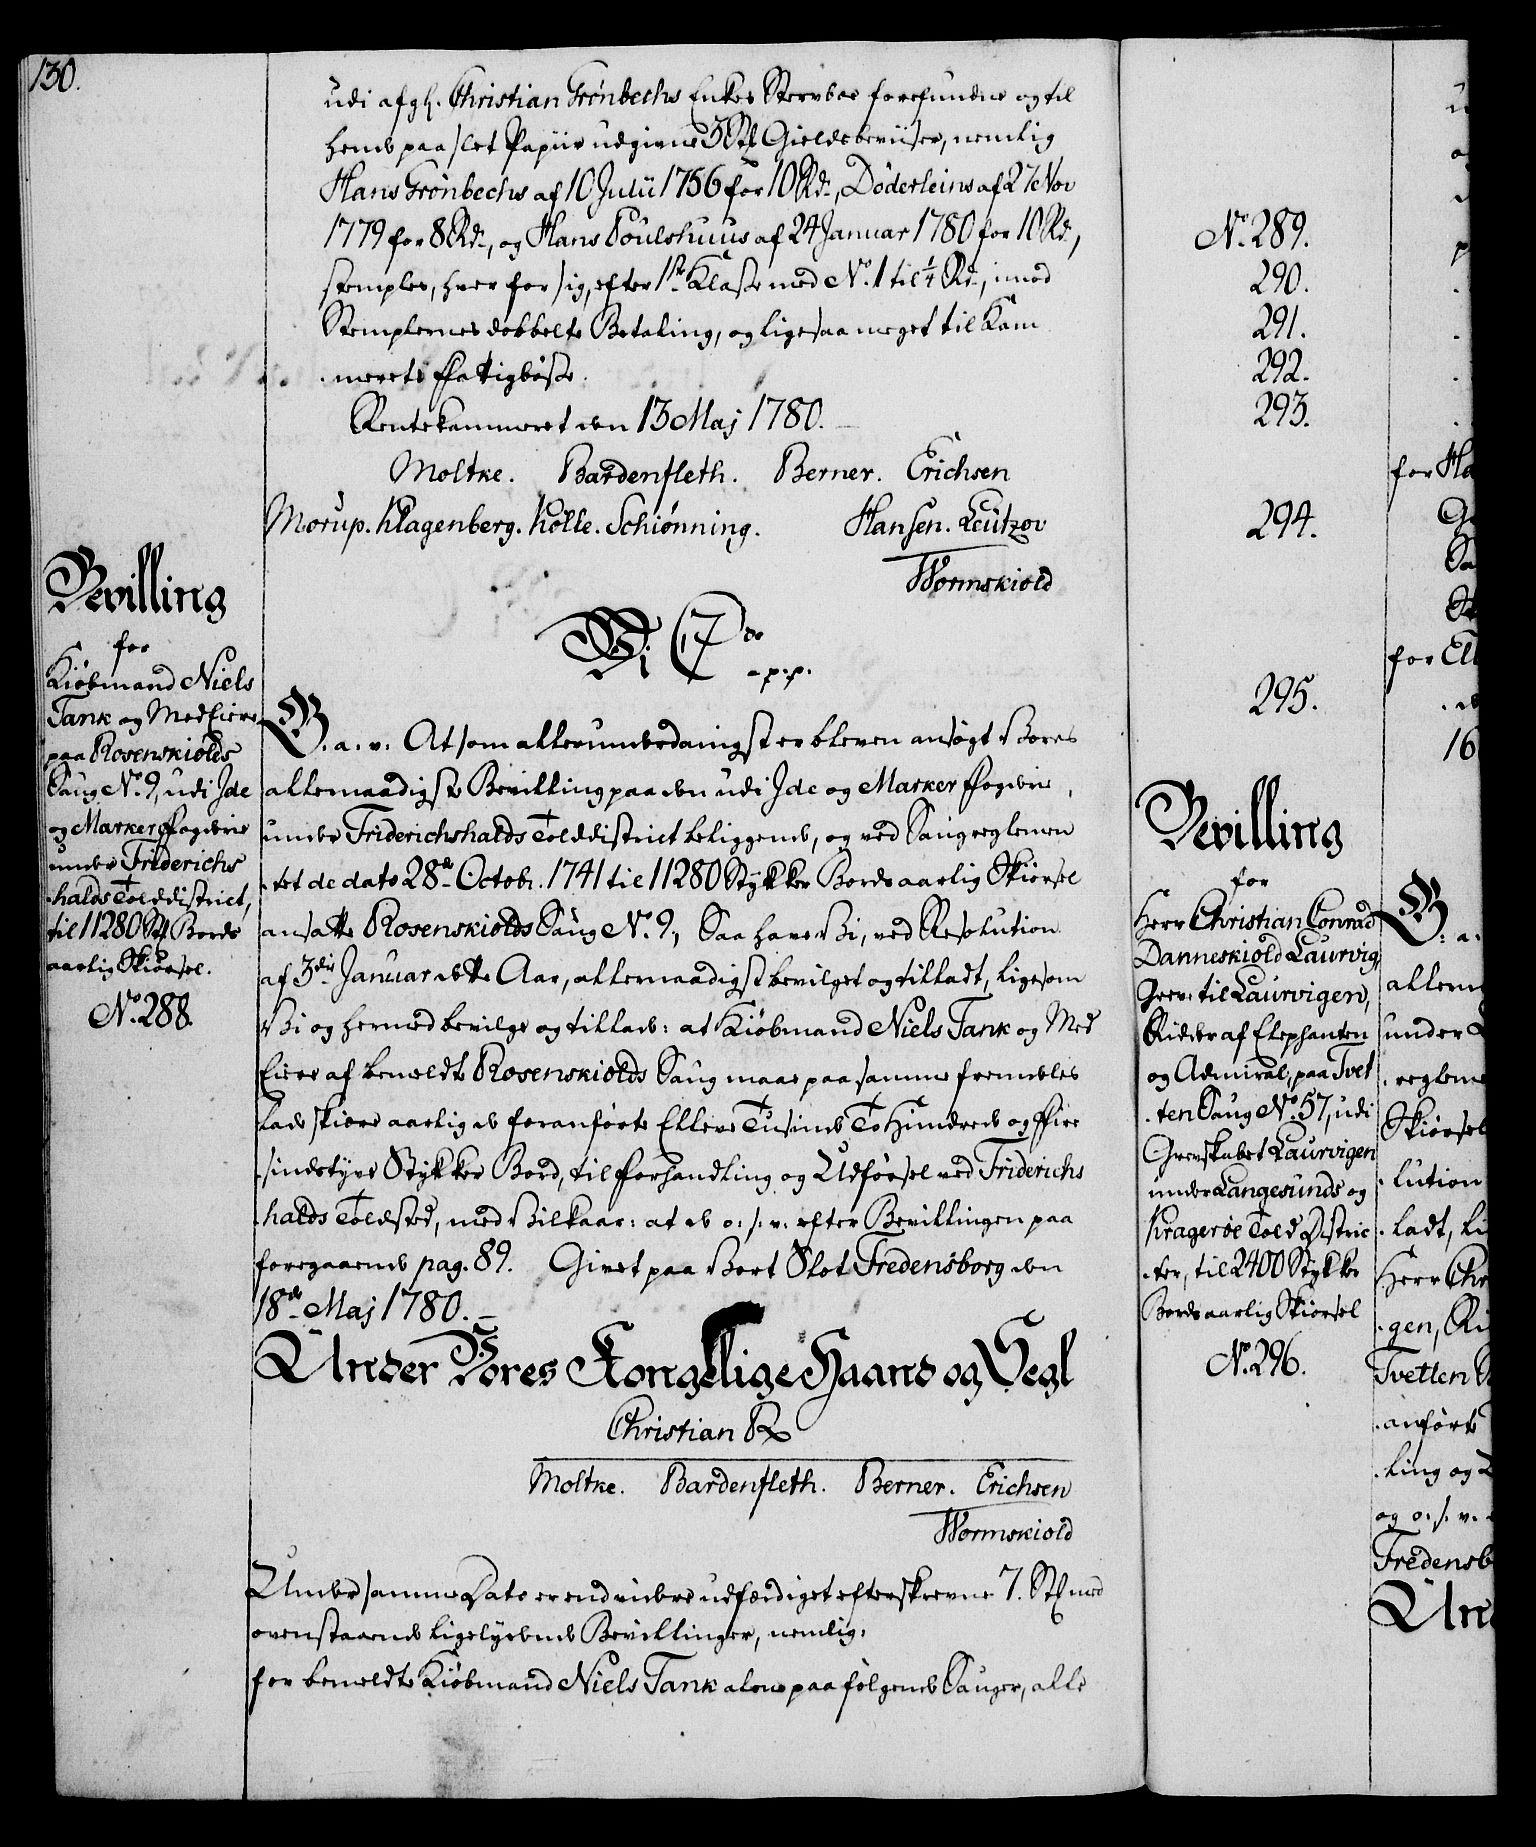 130.
udi afg. Christian Grönbechs Enkes Stervboe forefundne og til
hende paa slet Papiir udgivne 3 Stk Gieldsbeviiser, nemlig
Hans Grönbechs af 10 Julii 1756 for 10 Rd., Döderleins af 27 Nov
1779 for 8 Rd., og Hans Poulshuus af 24 Januar 1780 for 10 Rd.,
stemples, hver for sig, efter 1ste Klasse med No. 1 til 1/4 Rd., imod
Stemplernes dobbelte Betaling, og ligesaa meget til Kam
merets Fattigbösse.
Rentekammeret den 13 Maj 1780.
Moltke. Bardenfleth. Berner. Erichsen
Morup. Klagenberg. Kölle. Schiönning. Hansen. Leutzov
Wormskiold
Bevilling
for
Kiöbmand Niels
Tank og MedEiere
paa Rosenskiolds
Saug No. 9, udi Ide
og Marker Fogderie
under Friderichs
halds Tolddistrict,
til 11280 Stk Bords
aarlig Skiörsel.
No. 288.
Vi C 7de
p.p.
G. a. v. At som allerunderdanigst er bleven ansögt Vores
allernaadigste Bevilling paa den udi Ide og Marker Fogderie,
under Friderichshalds Tolddistrict beliggende, og ved Saugreglemen
tet de dato 28de Octobr. 1741 til 11280 Stykker Bords aarlig Skiörsel
ansatte Rosenskiolds Saug No. 9, Saa have Vi, ved Resolution
af 3die Januar dette Aar, allernaadigst bevilget og tilladt, ligesom
Vi og hermed bevilge og tillade: at Kiöbmand Niels Tank og Med
Eiere af bemeldte Rosenskiolds Saug maae paa samme fremdeles
lade skiære aarlig de foranförte Elleve Tusinde To Hundrede og Fire
sindstyve Stykker Bord, til Forhandling og Udförsel ved Friderichs
halds Toldsted, med Vilkaar: at de o. s. v. efter Bevillingen paa
foregaaende pag. 89. Givet paa Vort Slot Fredensborg den
18de Maj 1780.
Under Vores Kongellige Haand og Segl
Christian R
Moltke. Bardenfleth. Berner. Erichsen
Wormskiold
Under samme Dato er endvidere udfærdiget efterskrevne 7. Stk med
ovenstaaende ligelydende Bevillinger, nemlig:
for bemeldte Kiöbmand Niels Tank alene paa fölgende Sauger, alle
No. 289.
290.
291.
292.
293.
294.
295.
Bevilling
for
Herr Christian Conrad
Danneskiold Laurvig,
Greve til Laurvigen,
Ridder af Elephanten
og Admiral, paa Tvet
ten Saug No. 57, udi
Grevskabet Laurvigen
under Langesunds og
Kragerøe Told Distric
ter, til 2400 Stykker
Bords aarlig Skiörsel
No. 296.
for Ha
for El
16
G. a.
allern
under
reglem
Skiörsel
lution
ladt, li
Herr Chr
gen, Ri
Tvetten
anförte
ling og
og o. s. v.
Fredensb
Und